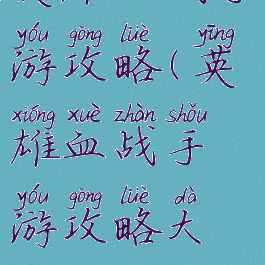 yóu gōng lüè yīng
游攻略(英
xióng xuè zhàn shǒu
雄血战手
yóu gōng lüè dà
游攻略大